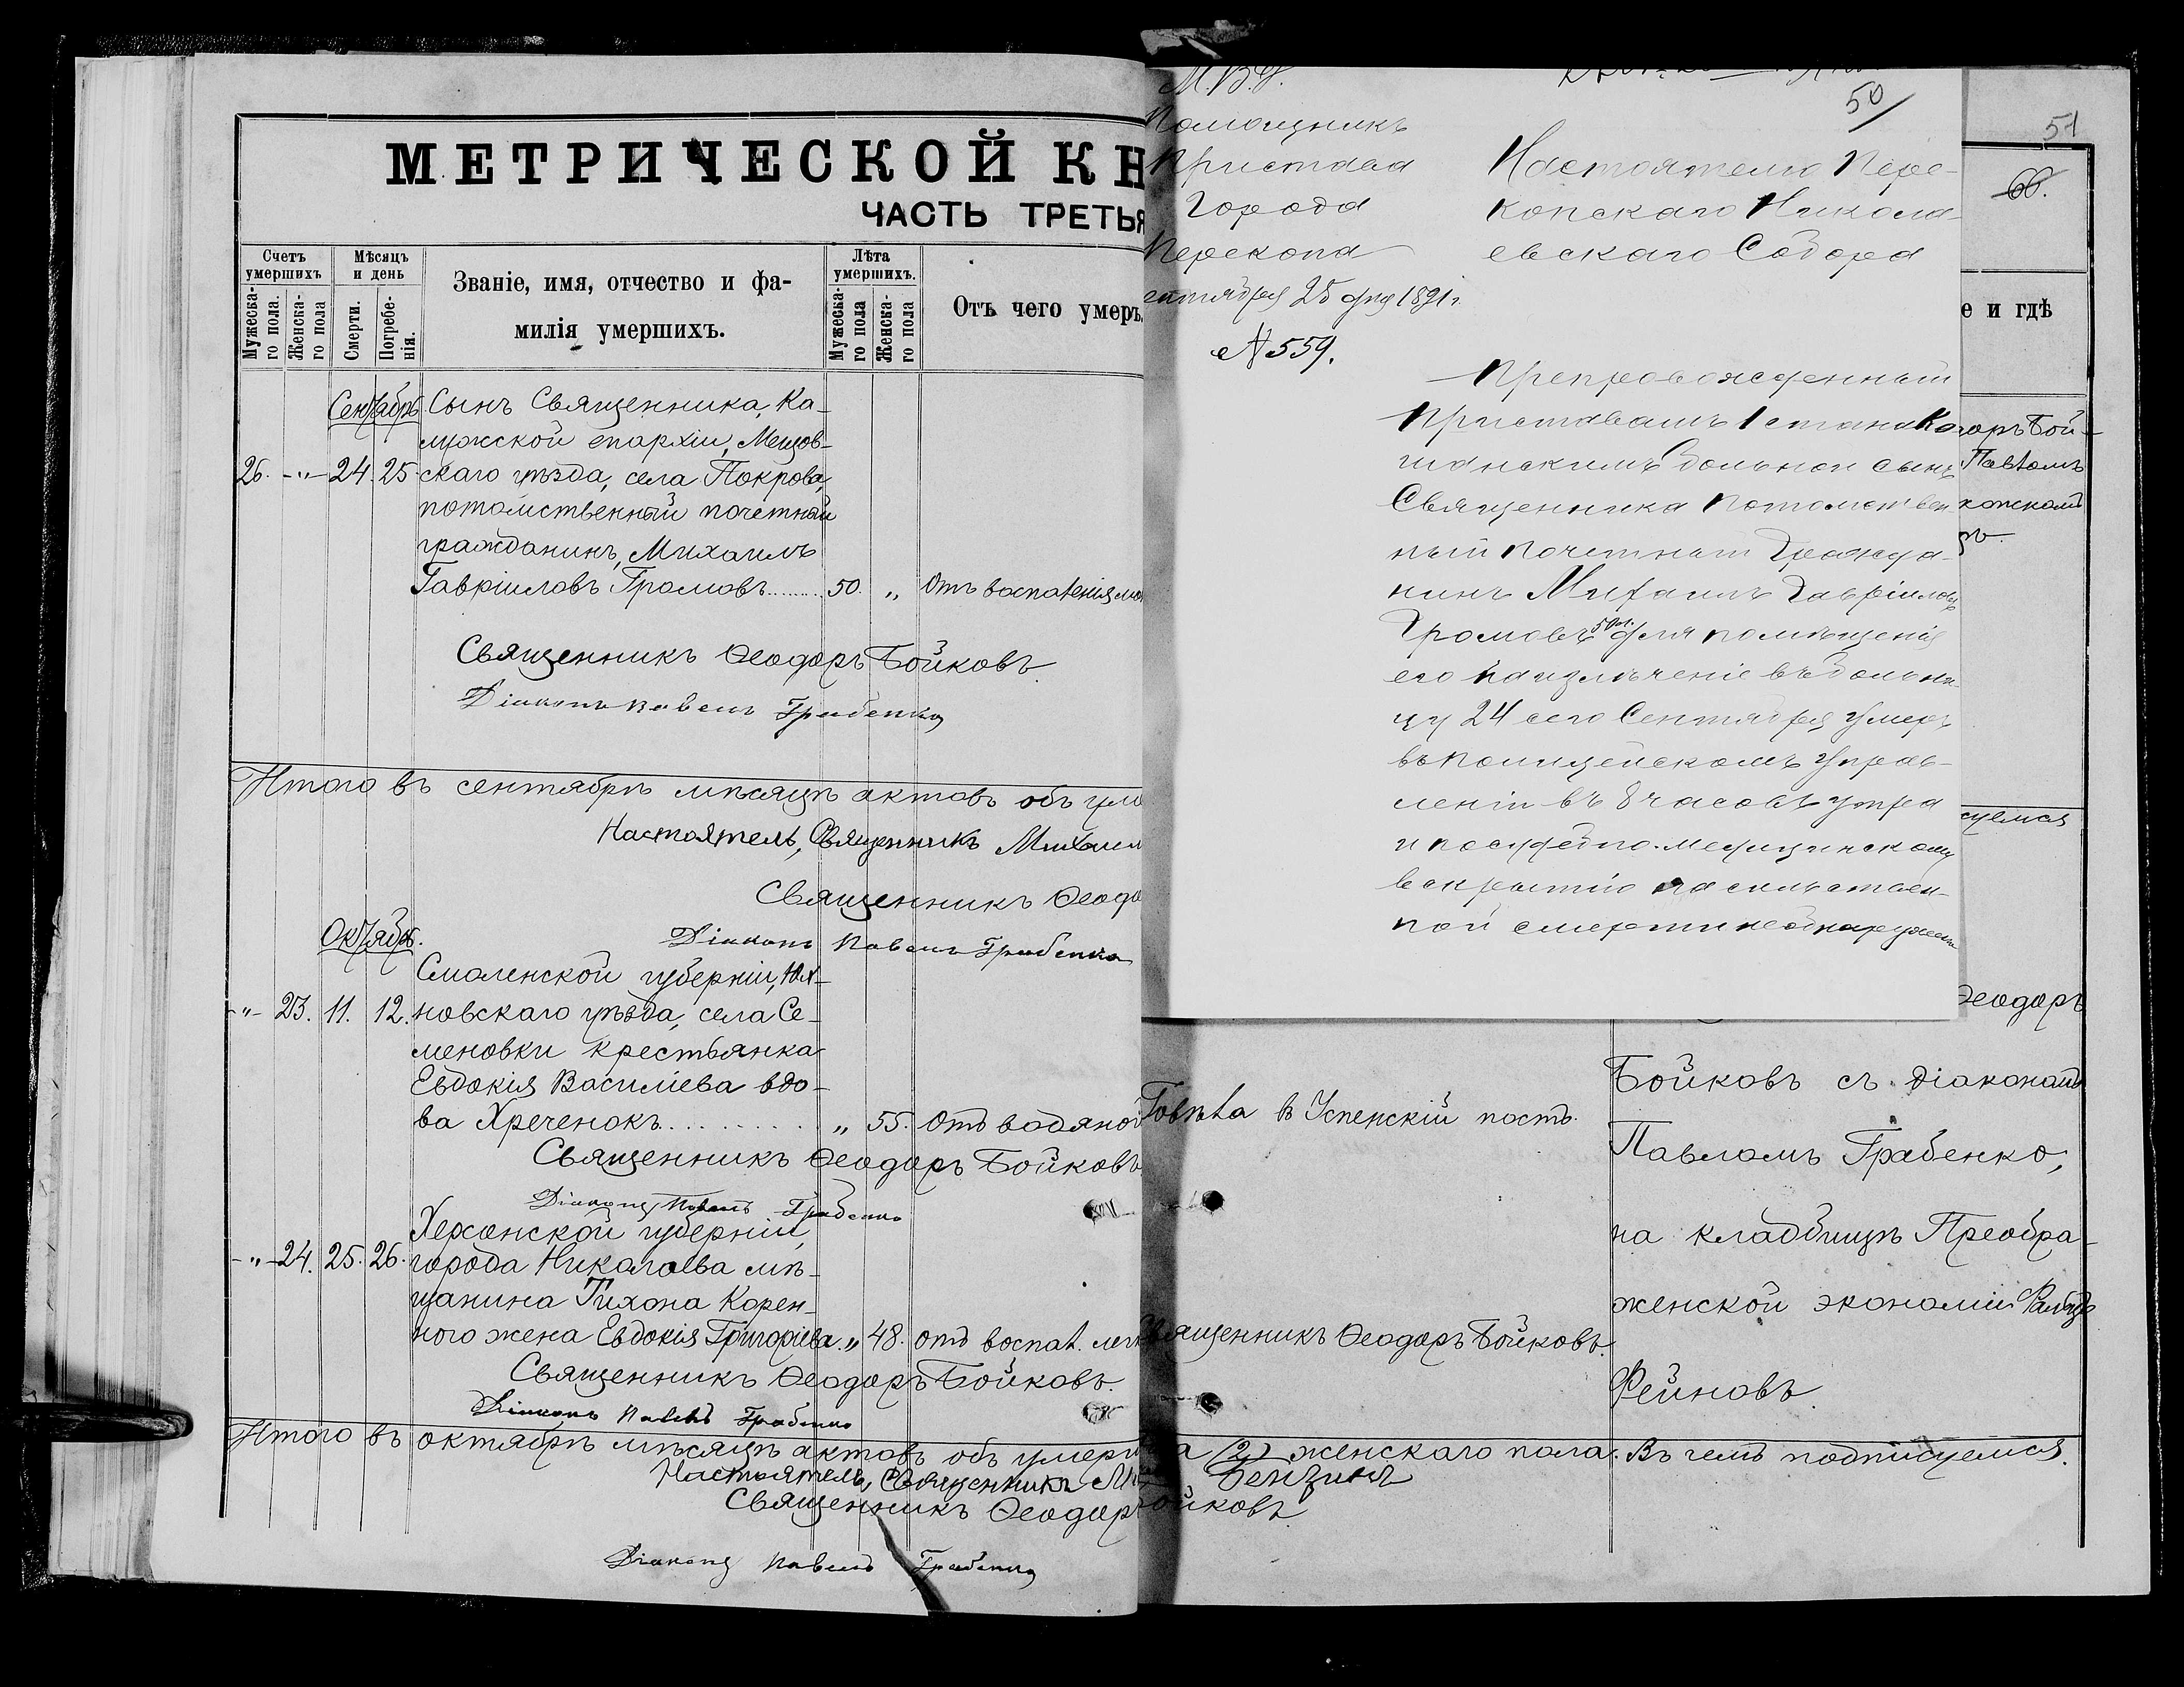 МЕТРИЧЕСКОЙ КН
ЧАСТЬ ТРЕТЬЯ
Счетъ умершихъ
Мужеска-го пола.
Женска-го пола
Мѣсяцъ и день
Смерти.
Погребе-нія.
Званіе, имя, отчество и фа-
милія умершихъ.
Лѣта умершихъ.
Мужеска-го пола
Женска-го пола
Отъ чего умеръ.
Сентябрь
Сынъ Священника, Ка-
лужской епархіи, Мещов-
26. -"- 24. 25. скаго уѣзда, села Покрова,
потомственный почетный
гражданинъ, Михаилъ
Гавріиловъ Громовъ......... 50. „ Отъ воспаленія
Священникъ Ѳеодоръ Бойковъ.
Діаконъ Павелъ Грабенко
Итого въ сентябрѣ мѣсяцѣ актовъ объ уме
Настоятель, Священникъ Михаил
Священникъ Ѳеодо
Діаконъ Павелъ Грабенко
Октябрь.
Смоленской губерніи, Юх-
-"- 23. 11. 12. новскаго уѣзда, села Се-
меновки крестьянка
Евдокія Василіева вдо-
ва Хреченокъ.......... „ 55. Отъ водяной
Священникъ Ѳеодоръ Бойковъ
Діаконъ Павелъ Грабенко
Херсонской губерніи,
-"- 24. 25. 26. города Николаева мѣ-
щанина Тихона Корен-
ного жена Евдокія Григоріева. „ 48. отъ воспал. лег
Священникъ Ѳеодоръ Бойковъ.
Діаконъ Павелъ Грабенко
Итого въ октябрѣ мѣсяцѣ актовъ объ умерш
Настоятель, Священникъ М
Священникъ Ѳеодоръ
Діаконъ Павелъ Грабенко
М.В.Д.
Помощникъ
Пристава
Города
Перекопа
ентября 25 дня 1891 г.
№ 559.
50
Настоятелю Пере-
копскаго Никола-
евскаго Собора
Препровожденный
Приставомъ 1 стана
больной сынъ
Священника Потомствен
ный Почетный Гражда-
нинъ Михаилъ Гавріиловъ
Громовъ 50 л. для помѣщенія
его на излѣченіе въ больни-
цу 24 сего Сентября умеръ
въ Полицейскомъ Управ-
леніи въ 8 часовъ утра
и по судебно-медицинскому
вскрытію насильствен-
ной смерти не обнаружено
51
60.
е и гдѣ
оръ Бой-
Павломъ
копскомъ
суемся
Ѳеодоръ
Бойковъ съ діакономъ
Павломъ Грабенко,
на кладбищѣ Преобра-
женской экономіи Фальцъ
Фейновъ.
Говѣла в Успенскій постъ.
вященникъ Ѳеодоръ Бойковъ.
а (2) женскаго пола. Въ чемъ подписуемся.
Бензинъ
ойковъ